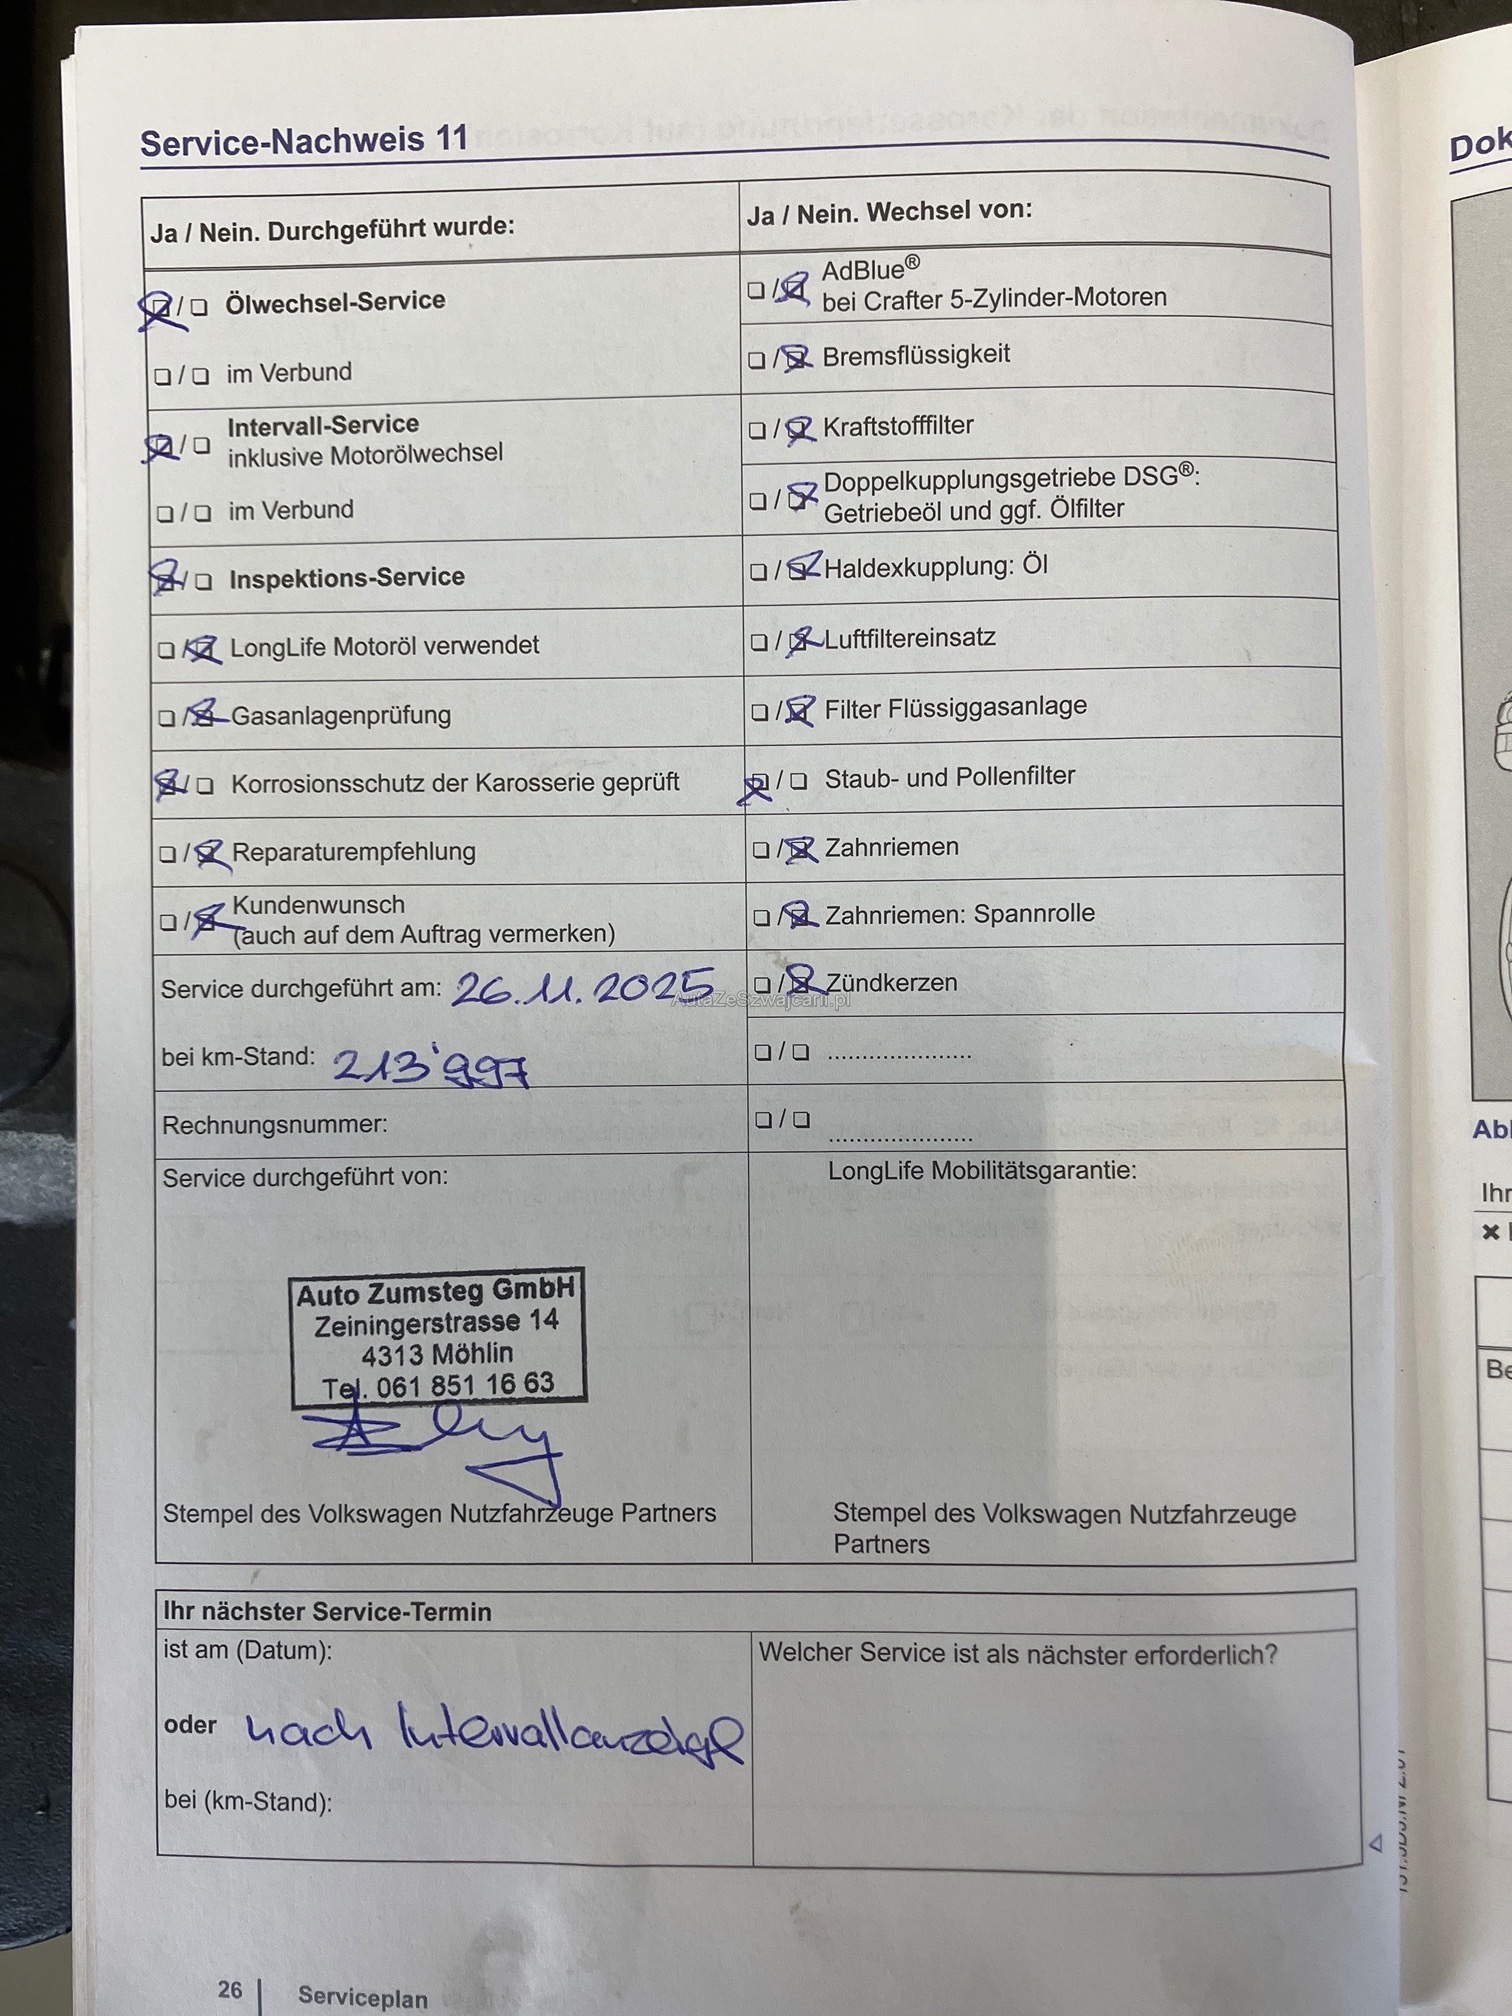 Service-Nachweis 11
Ja / Nein. Durchgeführt wurde:
☒ / ☐ Ölwechsel-Service
☐ / ☐ im Verbund
☒ / ☐ Intervall-Service
inklusive Motorölwechsel
☐ / ☐ im Verbund
☒ / ☐ Inspektions-Service
☐ / ☒ LongLife Motoröl verwendet
☐ / ☒ Gasanlagenprüfung
☒ / ☐ Korrosionsschutz der Karosserie geprüft
☐ / ☒ Reparaturempfehlung
☐ / ☒ Kundenwunsch
(auch auf dem Auftrag vermerken)
Service durchgeführt am: 26.11.2025
bei km-Stand: 213'997
Rechnungsnummer:
Service durchgeführt von:
Auto Zumsteg GmbH
Zeiningerstrasse 14
4313 Möhlin
Tel. 061 851 16 63
Stempel des Volkswagen Nutzfahrzeuge Partners
Ja / Nein. Wechsel von:
☐ / ☒ AdBlue®
bei Crafter 5-Zylinder-Motoren
☐ / ☒ Bremsflüssigkeit
☐ / ☒ Kraftstofffilter
☐ / ☒ Doppelkupplungsgetriebe DSG®:
Getriebeöl und ggf. Ölfilter
☐ / ☒ Haldexkupplung: Öl
☐ / ☒ Luftfiltereinsatz
☐ / ☒ Filter Flüssiggasanlage
☒ / ☐ Staub- und Pollenfilter
☐ / ☒ Zahnriemen
☐ / ☒ Zahnriemen: Spannrolle
☐ / ☒ Zündkerzen
☐ / ☐ .....................
☐ / ☐ .....................
LongLife Mobilitätsgarantie:
Stempel des Volkswagen Nutzfahrzeuge
Partners
AutaZeSzwajcarii.pl
Ihr nächster Service-Termin
ist am (Datum):
oder nach Intervallanzeige
bei (km-Stand):
Welcher Service ist als nächster erforderlich?
26 | Serviceplan
Dok
Ihr
Be